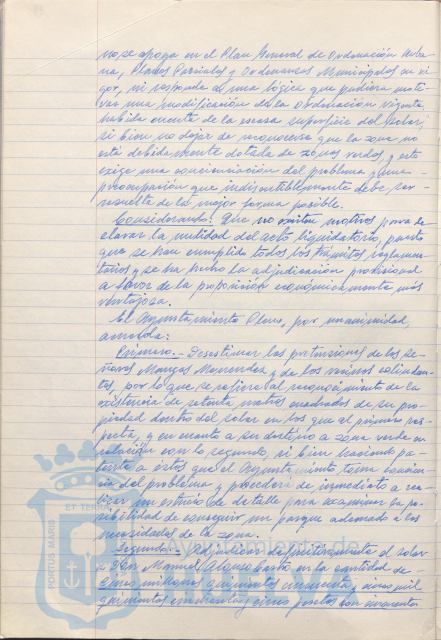 no se apoya en el Plan General de Ordenación Urba-
na, Planes Parciales y Ordenanzas Municipales en vi-
gor, ni responde a una lógica que pudiera moti-
var una modificación de la Ordenación vigente,
habida cuenta de la escasa superficie del solar,
si bien no deja de reconocerse que la zona no
está debidamente dotada de zonas verdes, y esto
exige una concienciación del problema y una
preocupación que indiscutiblemente debe ser re-
suelta de la mejor forma posible.
Considerando: Que no existen motivos para de-
clarar la nulidad del acto liquidatorio, puesto
que se han cumplido todos los trámites reglamen-
tarios y se ha hecho la adjudicación provisional
a favor de la proposición económicamente más
ventajosa.
El Ayuntamiento Pleno, por unanimidad,
acuerda:
Primero.- Desestimar las pretensiones de los se-
ñores Mangas Menendez y de los vecinos colindan-
tes, por lo que se refiere al reconocimiento de la
existencia de setenta metros cuadrados de su pro-
piedad dentro del solar en los que al primero res-
pecta, y en cuanto a su destino a zona verde en
relación con lo segundo, si bien haciendo pa-
tente a estos que el Ayuntamiento toma concien-
cia del problema y procederá de inmediato a rea-
lizar un estudio de detalle para examinar la po-
sibilidad de conseguir un parque adecuado a las
necesidades de la zona.
Segundo.- Adjudicar definitivamente el solar
a Don Manuel Alonso Castro en la cantidad de
cinco millones quinientas cincuenta y cinco mil
quinientas cincuenta y cinco pesetas con cincuenta
PORTUS MARIS
ET TERRAE
Ayuntamiento de
Huelva